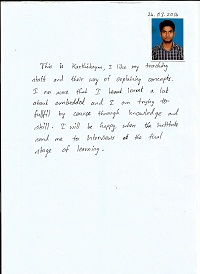 26.03.2016
This is Karthikeyan, I like my teaching
staff and their way of explaining concepts.
I am sure that I learnt a lot
about embedded and I am trying to
fulfil my course through knowledge and
skill. I will be happy when the institute
send me to Interviews at the final
stage of learning.